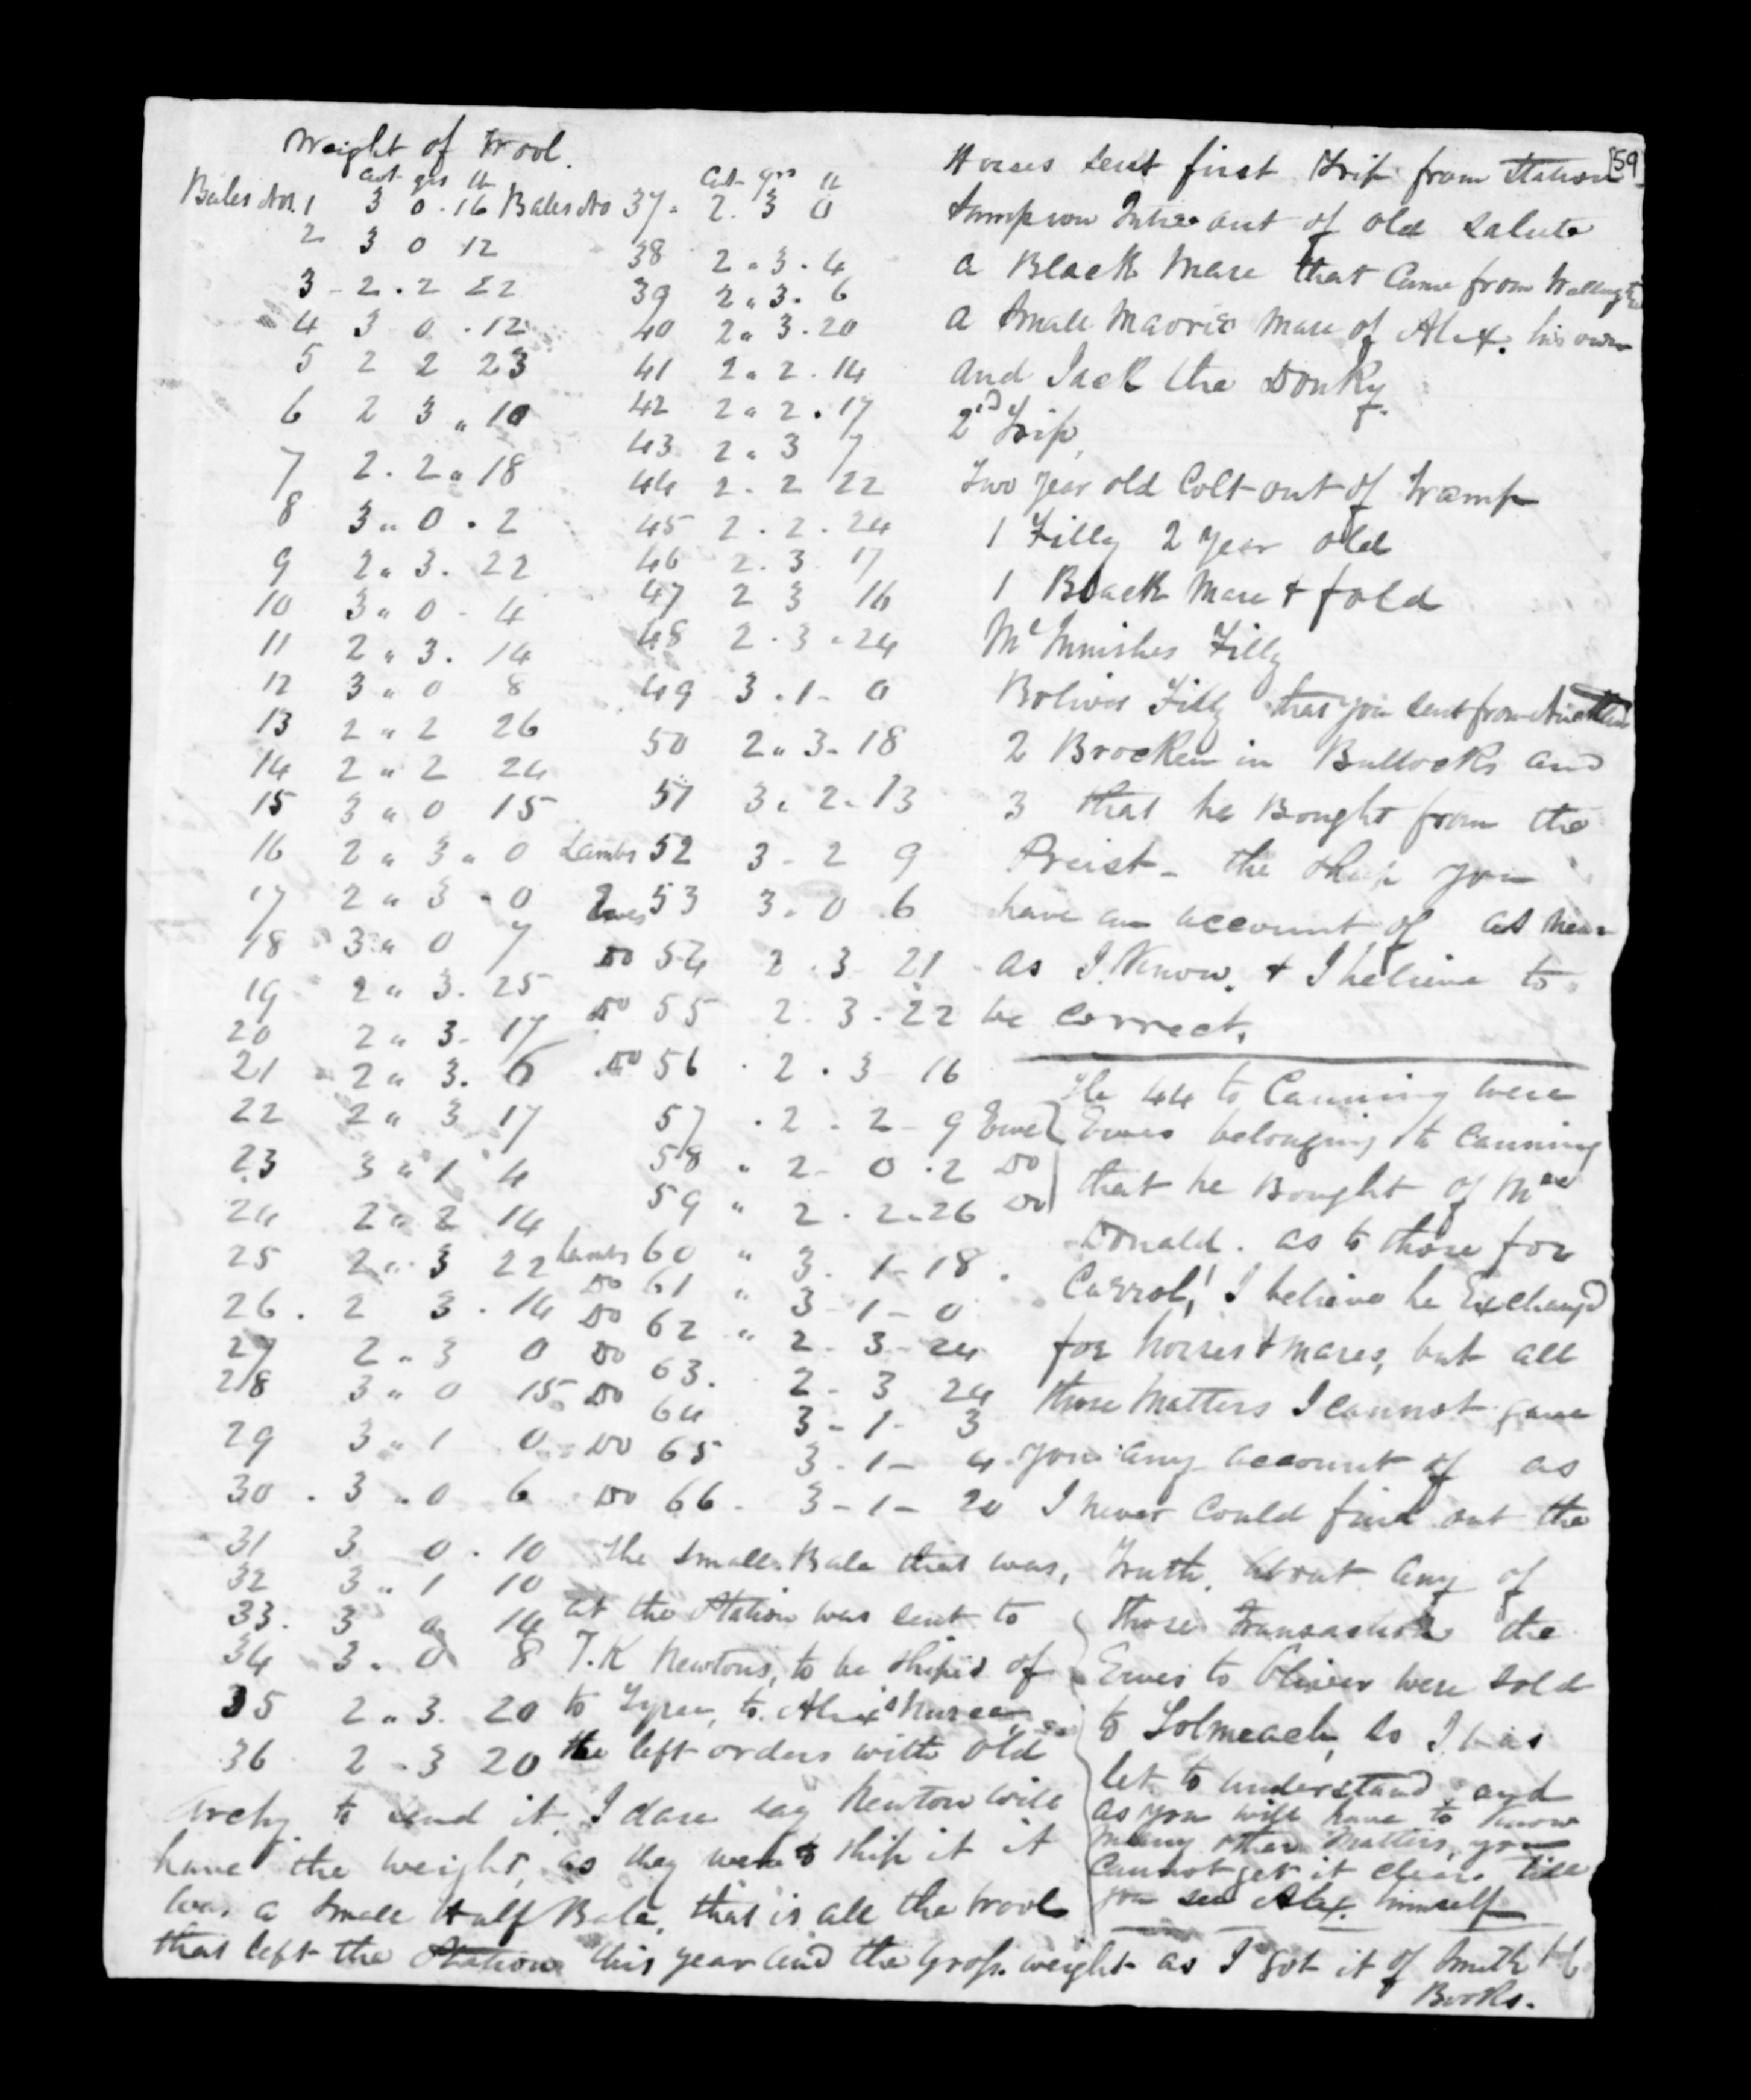 Weight of Wool.
cwt qrs lb
Bales Nos. 1 3 0 . 16
2 3 0 12
3 - 2 . 2 22
4 3 0 . 12
5 2 2 23
6 2 3 " 10
7 2 . 2 " 18
8 3 " 0 . 2
9 2 " 3 . 22
10 3 " 0 - 4
11 2 " 3 . 14
12 3 " 0 8
13 2 " 2 26
14 2 " 2 24
15 3 " 0 15
16 2 " 3 " 0
17 2 " 3 - 0
18 3 " 0 7
19 2 " 3 . 25
20 2 " 3 - 17
21 2 " 3 . 6
22 2 " 3 17
23 3 " 1 4
24 2 " 2 14
25 2 " 3 22
26 . 2 3 . 14
27 2 " 3 0
28 3 " 0 15
29 3 " 1 0
30 . 3 " 0 6
31 3 0 . 10
32 3 " 1 10
33 . 3 0 14
34 3 . 0 8
35 2 " 3 . 20
36 2 - 3 20
cwt qrs lb
Bales No 37 - 2 . 3 0
38 2 " 3 . 4
39 2 " 3 . 6
40 2 " 3 . 20
41 2 " 2 . 14
42 2 " 2 . 17
43 2 " 3 7
44 2 . 2 22
45 2 . 2 . 24
46 2 . 3 17
47 2 3 16
48 2 . 3 - 24
49 3 . 1 - 0
50 2 " 3 - 18
51 3 . 2 . 13
Lambs 52 3 - 2 9
Ewes 53 3 . 0 6
Do 54 2 . 3 21
Do 55 2 . 3 . 22
Do 56 . 2 . 3 16
57 . 2 - 2 - 9 Ewe
58 " 2 - 0 . 2 Do
59 " 2 . 2 - 26 Do
Lambs 60 " 3 . 1 - 18 .
Do 61 " 3 - 1 - 0
Do 62 " 2 - 3 - 24
Do 63 . 2 - 3 24
Do 64 3 - 1 - 3
Do 65 3 - 1 - 4
Do 66 - 3 - 1 - 20
The small Bale that was,
at the Station was sent to
T.K Newtons, to be shiped of
to to Alex's
the left orders with old
Archy to send it I dare say Newton will
have the weight, as they were to ship it it
was a small Half Bale, that is all the wool
that left the Station this year and the Gross weight as I got it of Smith
Books.
59
Horses sent first Trip from Station
Sampson out of old Salute
a Black Mare that Came from
a Small Maorie Mare of Alex. his own
and Jack the Donky
2nd Trip,
Two year old Colt out of Tramp
1 Filly 2 year old
1 Black Mare & fold
McInnishes Filly
Filly that you sent from
2 Brocken in Bullocks and
3 that he Bought from the
Preist - the Sheep you
have an account of as near
as I Know. & I believe to
be correct.
The 44 to Canning were
Ewes belonging to Canning
that he Bought of Mac
Donald. as to those for
Carrol, I believe he Exchangd
for horses & mares, but all
those Matters I cannot gave
you any account of as
I never Could find out the
Truth. about any of
those transactions the
Ewes to Oliver were sold
to so I was
let to understand, and
as you will have to know
many other matters, you
Cannot get it clear till
you see Alex. himself